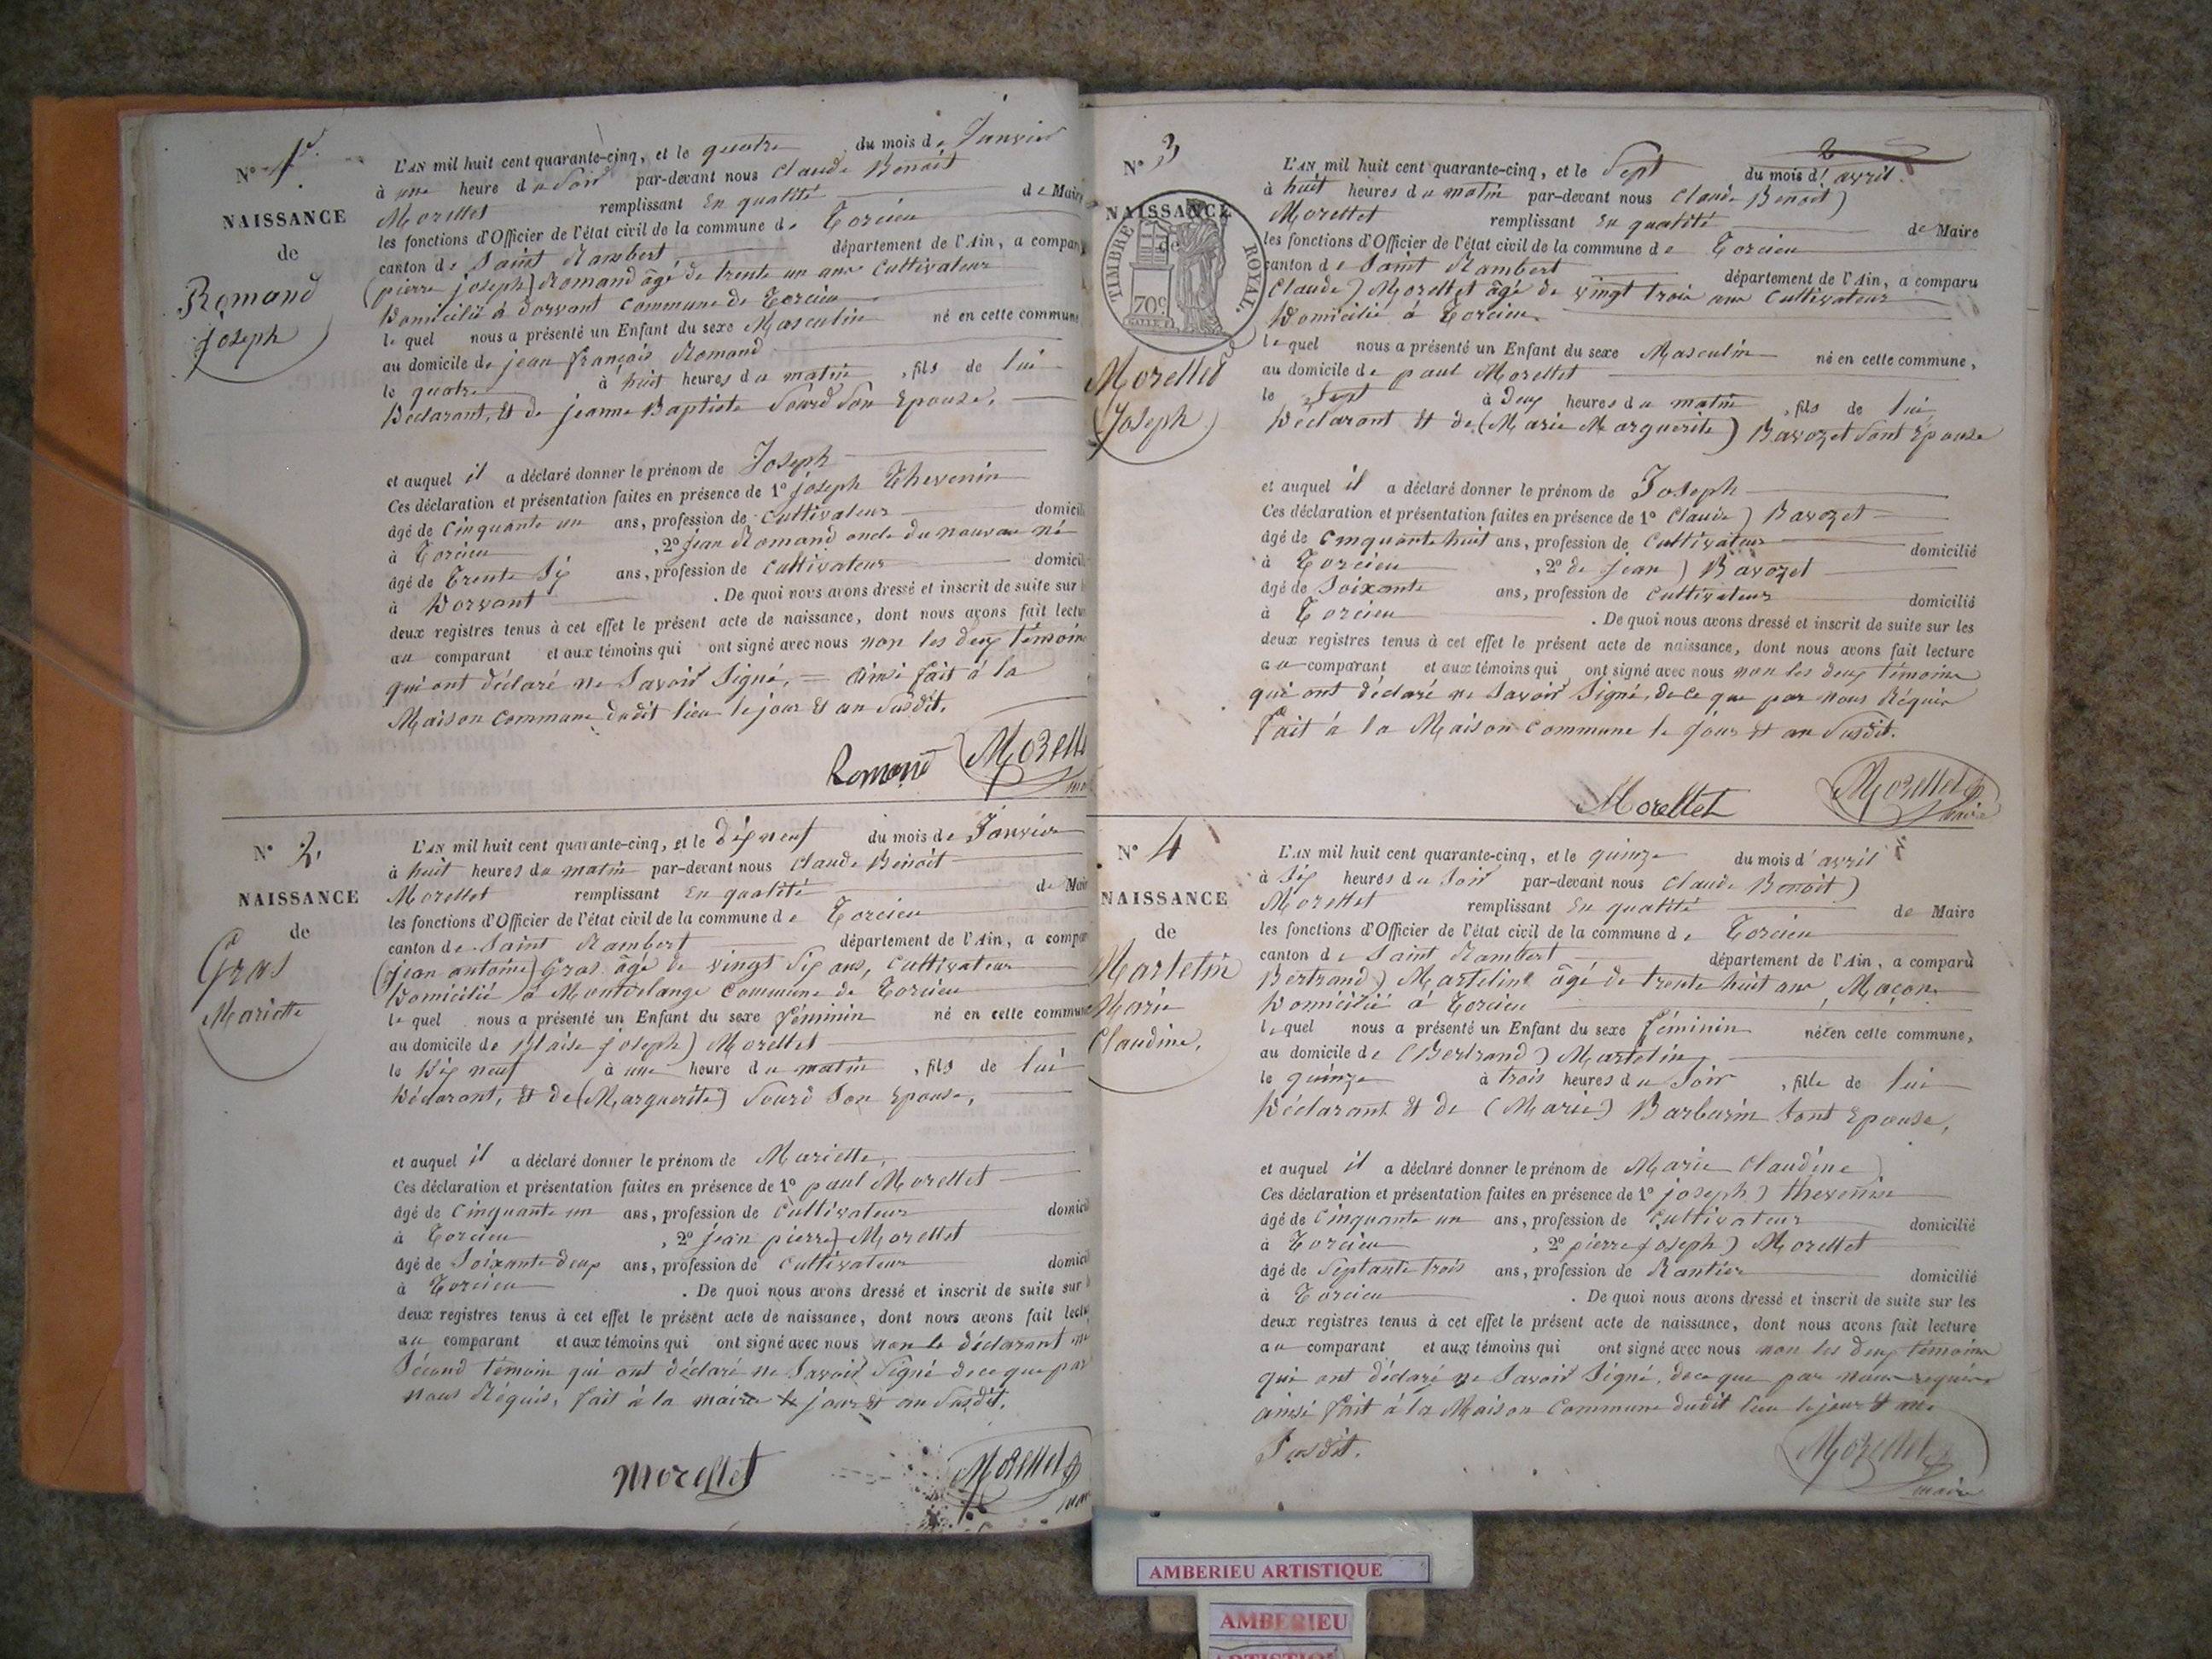 N° 1er
NAISSANCE
de
Romand
Joseph
L'AN mil huit cent quarante-cinq, et le quatre du mois de Janvier
à une heure du Soir par-devant nous Claude Benoit
Morellet remplissant En qualité de Maire
les fonctions d'Officier de l'état civil de la commune de Torcieu
canton de Saint Rambert département de l'Ain, a compar
(pierre joseph) Romand âgé de trente un ans Cultivateur
Domicilié à Dorvant Commune de Torcieu
lequel nous a présenté un Enfant du sexe Masculin né en cette commune
au domicile de jean françois Romand
le quatre à huit heures du matin, fils de lui
Déclarant, Et de jeanne Baptiste Sourd Son Epouse,
et auquel il a déclaré donner le prénom de Joseph
Ces déclaration et présentation faites en présence de 1° joseph Thevenin
âgé de Cinquante un ans, profession de Cultivateur domicili
à Torcieu, 2° Jean Romand oncle du nouveau né
âgé de Trente Six ans, profession de Cultivateur domicili
à Dorvant. De quoi nous avons dressé et inscrit de suite sur
deux registres tenus à cet effet le présent acte de naissance, dont nous avons fait lectu
au comparant et aux témoins qui ont signé avec nous non les deux témoins
qui ont déclaré ne Savoir Signé, = Ainsi fait à la
Maison Commune dudit lieu le jour Et an Susdit.
Romand Morell
N° 2
NAISSANCE
de
Gras
Mariette
L'AN mil huit cent quarante-cinq, et le Dix neuf du mois de Janvier
à huit heures du matin par-devant nous Claude Benoit
Morellet remplissant En qualité de Mair
les fonctions d'Officier de l'état civil de la commune de Torcieu
canton de Saint Rambert département de l'Ain, a compar
(Jean antoine) Gras âgé de vingt Six ans, Cultivateur
Domicilié à Montdelange Commune de Torcieu
lequel nous a présenté un Enfant du sexe féminin né en cette commune
au domicile de Blaise joseph) Morellet
le Dix neuf à une heure du matin, fils de lui
Déclarant, Et de (Marguerite) Sourd Son Epouse,
et auquel il a déclaré donner le prénom de Mariette,
Ces déclaration et présentation faites en présence de 1° paul Morellet
âgé de Cinquante un ans, profession de Cultivateur domicil
à Torcieu, 2° jean pierre) Morellet
âgé de Soixante deux ans, profession de Cultivateur domicil
à Torcieu. De quoi nous avons dressé et inscrit de suite sur
deux registres tenus à cet effet le présent acte de naissance, dont nous avons fait lectu
au comparant et aux témoins qui ont signé avec nous non le déclarant
Second témoin qui ont déclaré ne Savoir Signé de ce que par
nous Réquis, fait à la mairie le jour Et an Susdit.
Morellet Morellet
2
N° 3
NAISSANCE
de
TIMBRE ROYAL.
70c
Morellet
Joseph
L'AN mil huit cent quarante-cinq, et le Sept du mois d'avril
à huit heures du matin par-devant nous Claude Benoit)
Morellet remplissant En qualité de Maire
les fonctions d'Officier de l'état civil de la commune de Torcieu
canton de Saint Rambert département de l'Ain, a comparu
Claude) Morellet âgé de vingt trois ans Cultivateur
Domicilié à Torcieu
lequel nous a présenté un Enfant du sexe Masculin né en cette commune,
au domicile de paul Morellet
le Sept à deux heures du matin, fils de lui
Déclarant Et de (Marie Marguerite) Bavozet Sont Epouse
et auquel il a déclaré donner le prénom de Joseph
Ces déclaration et présentation faites en présence de 1° Claude) Bavozet
âgé de Cinquante huit ans, profession de Cultivateur domicilié
à Torcieu, 2° de Jean) Bavozet
âgé de Soixante ans, profession de Cultivateur domicilié
à Torcieu. De quoi nous avons dressé et inscrit de suite sur les
deux registres tenus à cet effet le présent acte de naissance, dont nous avons fait lecture
au comparant et aux témoins qui ont signé avec nous non les deux témoins
qui ont déclaré ne Savoir Signé, de ce que par nous Réquis
fait à la Maison Commune le jour Et an Susdit.
Morellet Morellet
maire
N° 4
NAISSANCE
de
Martelin
Marie
Claudine,
L'AN mil huit cent quarante-cinq, et le quinze du mois d'avril
à Six heures du Soir par-devant nous Claude Benoit)
Morellet remplissant En qualité de Maire
les fonctions d'Officier de l'état civil de la commune de Torcieu
canton de Saint Rambert département de l'Ain, a comparu
Bertrand) Martelin âgé de trente huit ans, Maçon
Domicilié à Torcieu
lequel nous a présenté un Enfant du sexe féminin née en cette commune,
au domicile de (Bertrand) Martelin,
le quinze à trois heures du Soir, fille de lui
Déclarant Et de (Marie) Barbarin Sont Epouse,
et auquel il a déclaré donner le prénom de Marie Claudine)
Ces déclaration et présentation faites en présence de 1° joseph) thevenin
âgé de Cinquante un ans, profession de Cultivateur domicilié
à Torcieu, 2° pierre joseph) Morellet
âgé de Septante trois ans, profession de Rantier domicilié
à Torcieu. De quoi nous avons dressé et inscrit de suite sur les
deux registres tenus à cet effet le présent acte de naissance, dont nous avons fait lecture
au comparant et aux témoins qui ont signé avec nous non les deux témoins
qui ont déclaré ne Savoir Signé, de ce que par nous requis
ainsi fait à la Maison Commune dudit lieu le jour Et an
Susdit.
Morellet
maire
AMBERIEU ARTISTIQUE
AMBERIEU
ARTISTIQUE